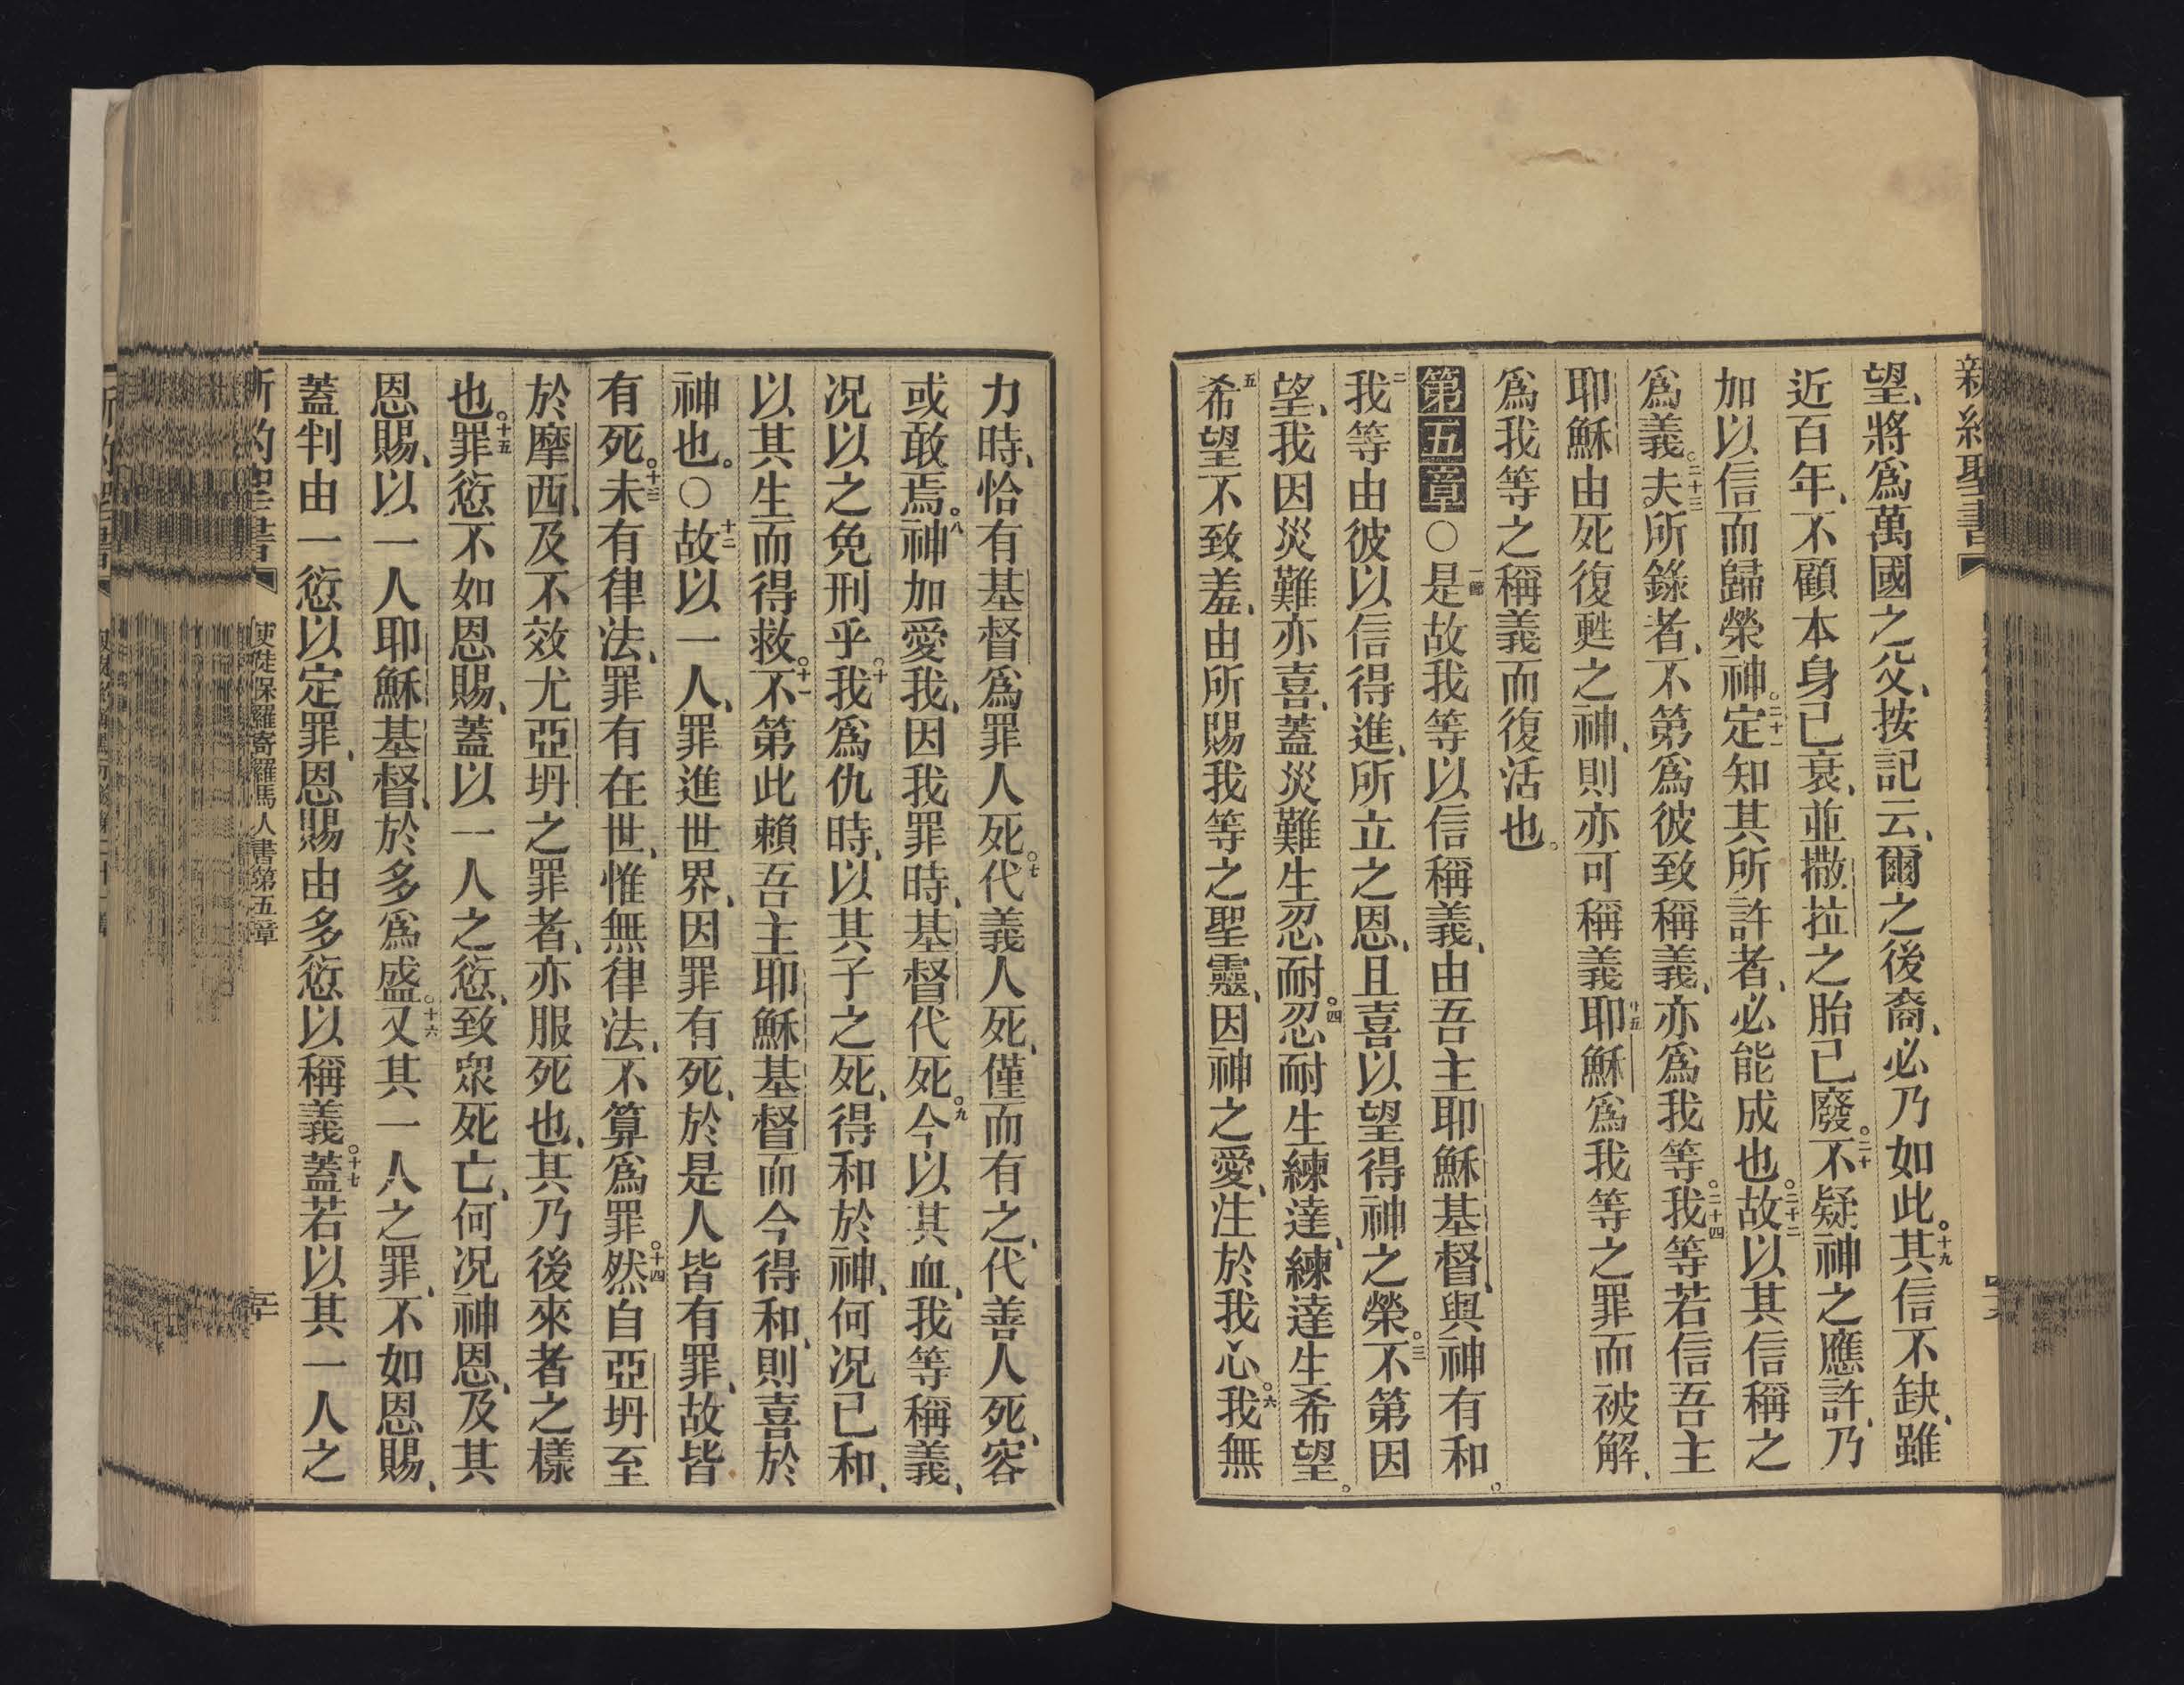 新約聖書
望、將爲萬國之父、按記云、爾之後裔、必乃如此。十九其信不缺、雖
近百年、不顧本身已衰、並撒拉之胎已廢。二十不疑神之應許、乃
加以信而歸榮神。二十一定知其所許者、必能成也。二十二故以其信稱之
爲義。二十三夫所錄者、不第爲彼致稱義、亦爲我等。二十四我等若信吾主
耶穌由死復甦之神、則亦可稱義廿五耶穌爲我等之罪而被解、
爲我等之稱義而復活也。
第五章○一節是故我等以信稱義、由吾主耶穌基督、與神有和。
二我等由彼以信得進、所立之恩、且喜以望得神之榮。三不第因
望、我因災難亦喜、蓋災難生忍耐。四忍耐生練達、練達生希望。
五希望不致羞、由所賜我等之聖靈、因神之愛、注於我心。六我無
力時、恰有基督爲罪人死。七代義人死、僅而有之、代善人死、容
或敢焉。八神加愛我、因我罪時、基督代死。九今以其血、我等稱義、
况以之免刑乎。十我爲仇時、以其子之死、得和於神、何况已和、
以其生而得救。十一不第此賴吾主耶穌基督而今得和、則喜於
神也。○十二故以一人、罪進世界、因罪有死、於是人皆有罪、故皆
有死。十三未有律法、罪有在世、惟無律法、不算爲罪。十四然自亞坍至
於摩西、及不效尤亞坍之罪者、亦服死也、其乃後來者之樣
也。十五罪愆不如恩賜、蓋以一人之愆、致衆死亡、何况神恩、及其
恩賜、以一人耶穌基督、於多爲盛。十六又其一人之罪、不如恩賜、
蓋判由一愆以定罪、恩賜由多愆以稱義。十七蓋若以其一人之
新約聖書 使徒保羅寄羅馬人書第五章